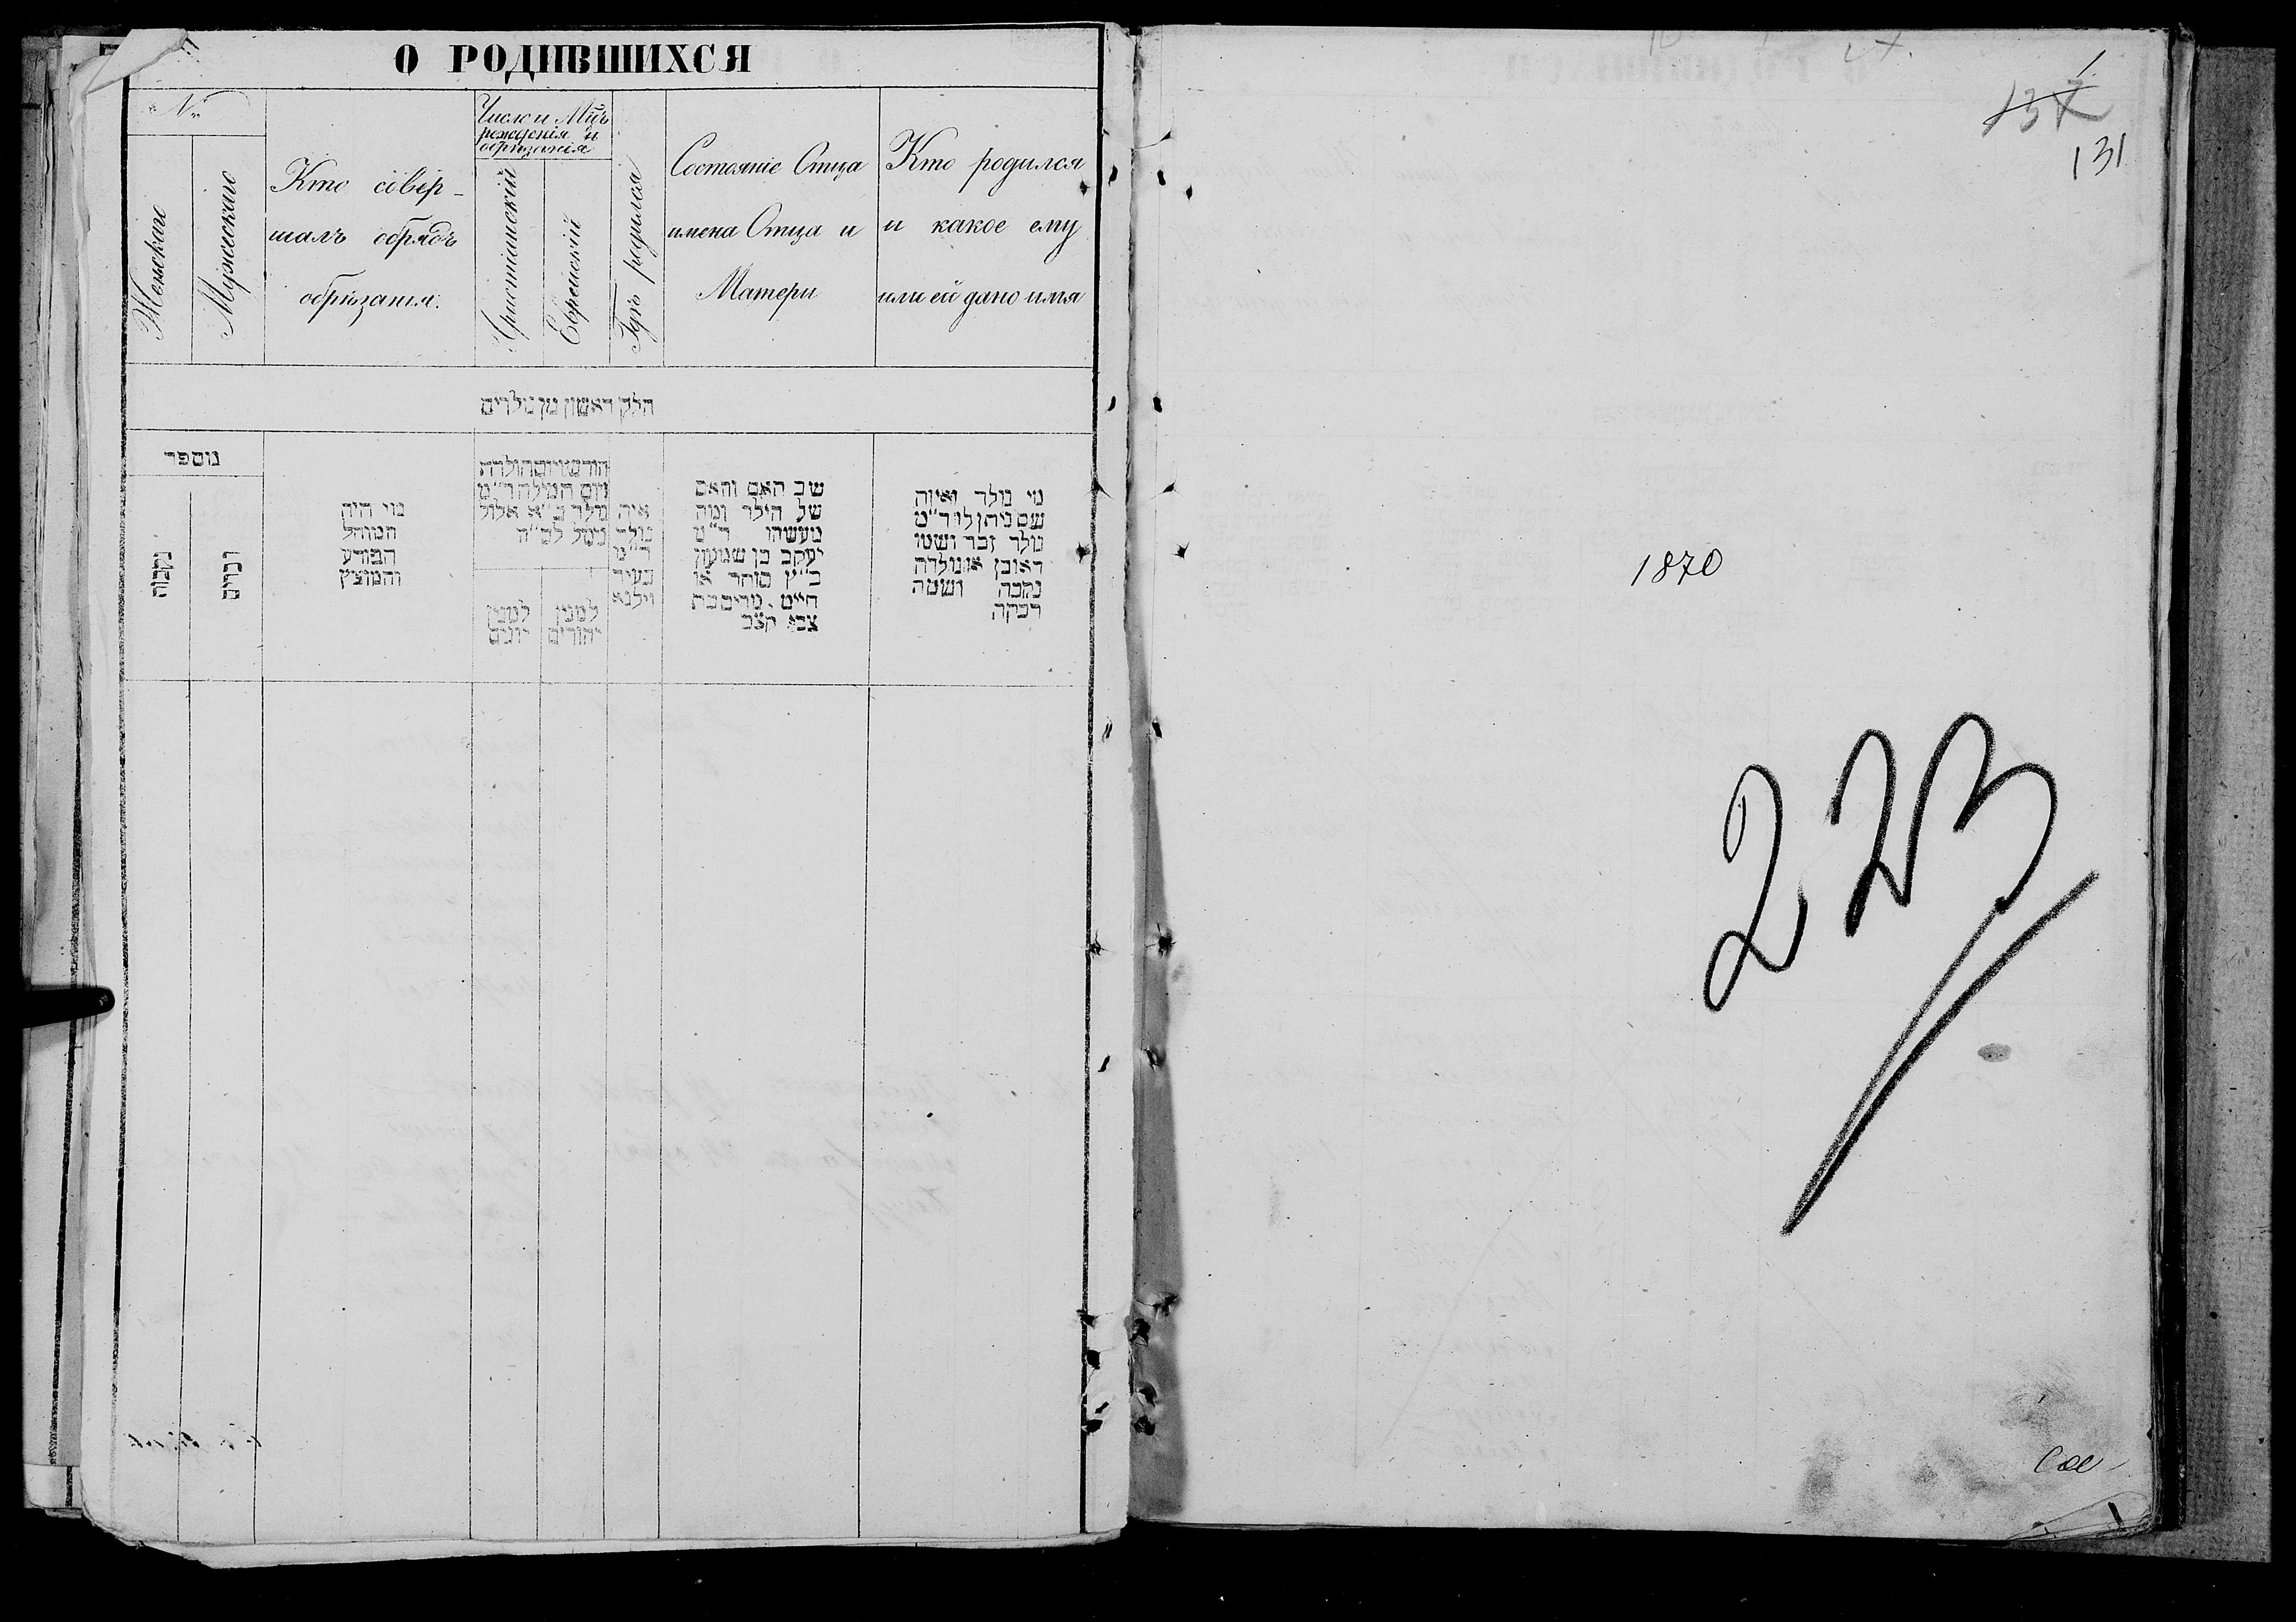 О РОДИВШИХСЯ
№
Женскаго
Мужескаго
Кто совер-
шалъ обрядъ
обрѣзанія.
Число и Мѣц
рожденія и
обрѣзанія
Христіанскій
Еврейскій
Гдѣ родился
Состояніе Отца
имена Отца и
Матери
Кто родился
и какое ему
или ей дано имя
חלק ראשון מן נולדים
מספר
נקבות
זכרים
מי היה
המוהל
הפורע
והמוצץ
חודש ויום הולדת
ויום המילה ד״מ
נולד ב״א אלול
נימל לב״ה
למנין
יונים
למנין
יהודים
איה
נולד
ד״מ
בעיר
וילנא
שב האב והאם
של הילד ומה
מעשהו ד״מ
יעקב בן שמעון
כ״ץ סוחר או
חייט. מרים בת
צבי קצב
מי נולד ואיזה
שם ניתן לו ד״מ
נולד זכר ושמו
ראובן או נולדה
נקבה ושמה
רבקה
1
137
131
1870
223